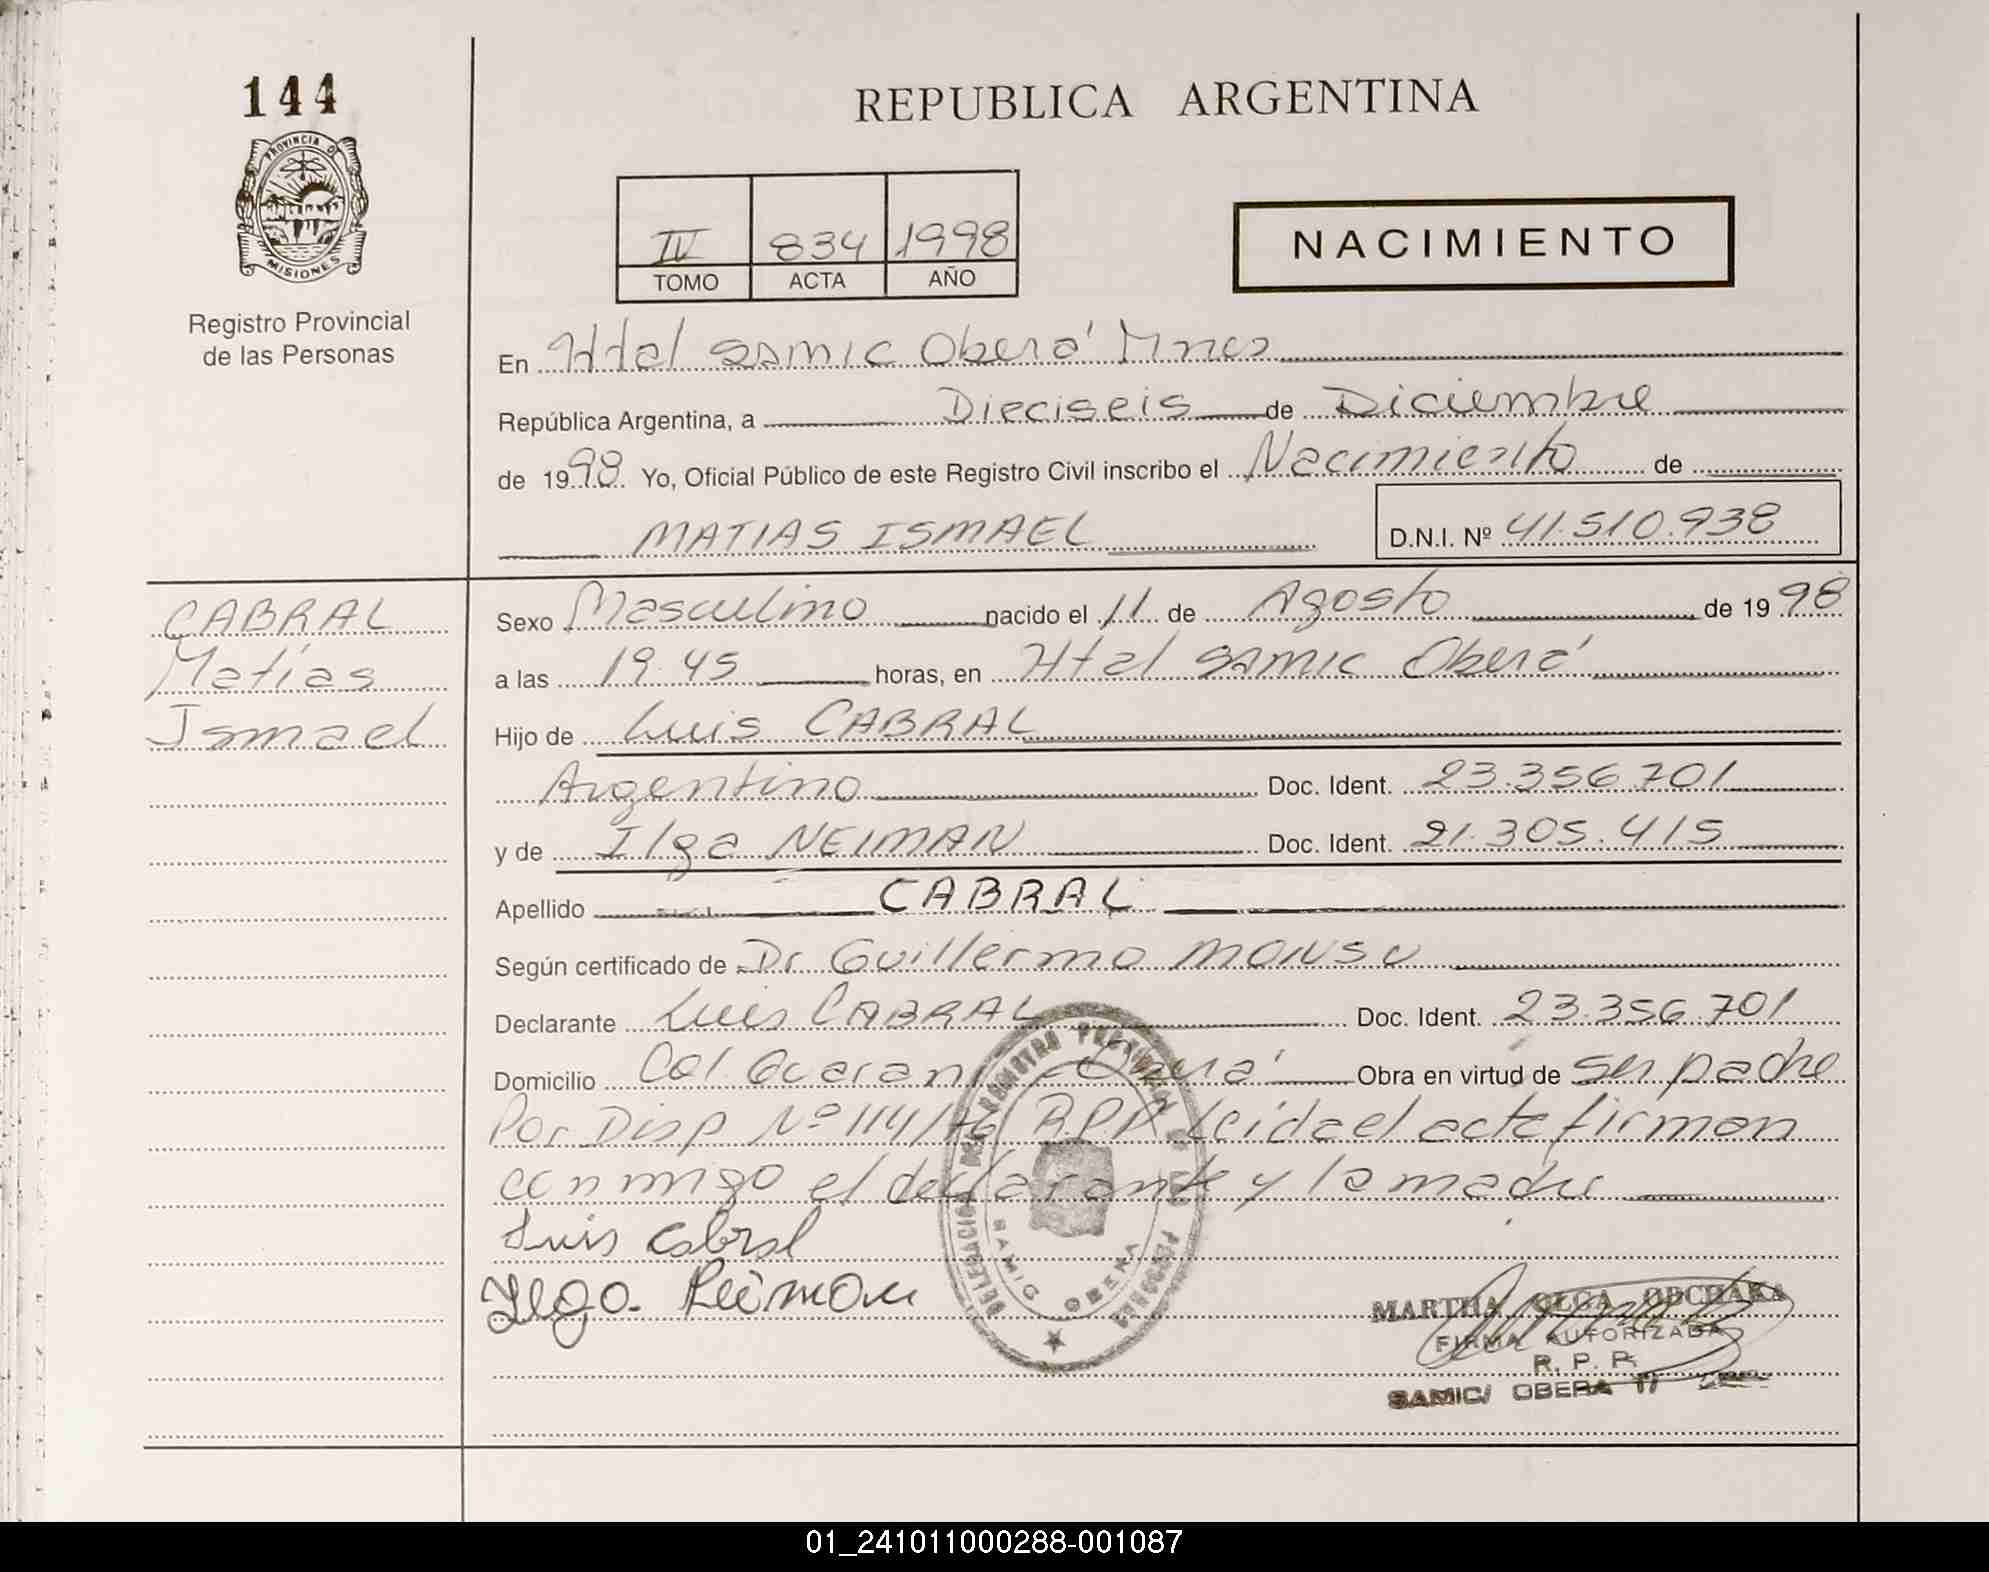 144
REPUBLICA ARGENTINA
PROVINCIA D
MISIONES
Registro Provincial
de las Personas
IV 834 1998
TOMO ACTA AÑO
NACIMIENTO
En Htal SAMIC Oberá Mnes
República Argentina, a Dieciseis de Diciembre
de 1998. Yo, Oficial Público de este Registro Civil inscribo el Nacimiento de
MATIAS ISMAEL D.N.I. Nº 41.510.938
CABRAL
Matías
Ismael
Sexo Masculino nacido el 11 de Agosto de 1998
a las 19.45 horas, en Htal SAMIC Oberá
Hijo de Luis CABRAL
Argentino Doc. Ident. 23.356.701
y de Ilga NEIMAN Doc. Ident. 21.305.415
Apellido CABRAL
Según certificado de Dr Guillermo MONSU
Declarante Luis CABRAL Doc. Ident. 23.356.701
Domicilio Col. Guarani Oberá Obra en virtud de ser padre
Por Disp Nº 114/76 R.P.P. Leida el acta firman
conmigo el declarante y la madre
Luis Cabral
Ilga. Neiman
DELEGACION DEL REGISTRO PROVINCIAL DE LAS PERSONAS
SAMIC OBERA
MARTHA OLGA
FIRMA AUTORIZADA
R. P. P.
SAMIC/ OBERA
01_241011000288-001087